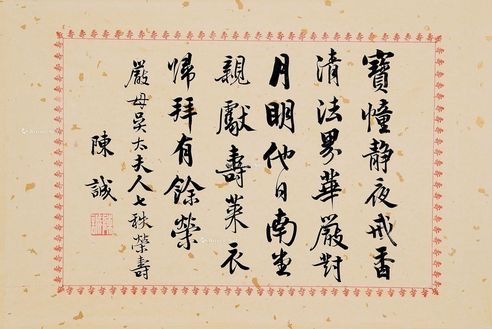 寶幢静夜戒香
清法界華嚴對
月明他日南坐
親獻壽萊衣
歸拜有餘榮
嚴母吳太夫人七秩榮壽
陳誠